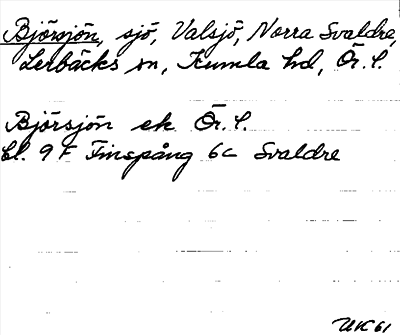 Björsjön, sjö, Valsjö, Norra Svaldre,
Lerbäcks sn, Kumla hd, Ör. l.
Björsjön ek Ör. l.
bl. 9 F Finspång 6c Svaldre
UK 61